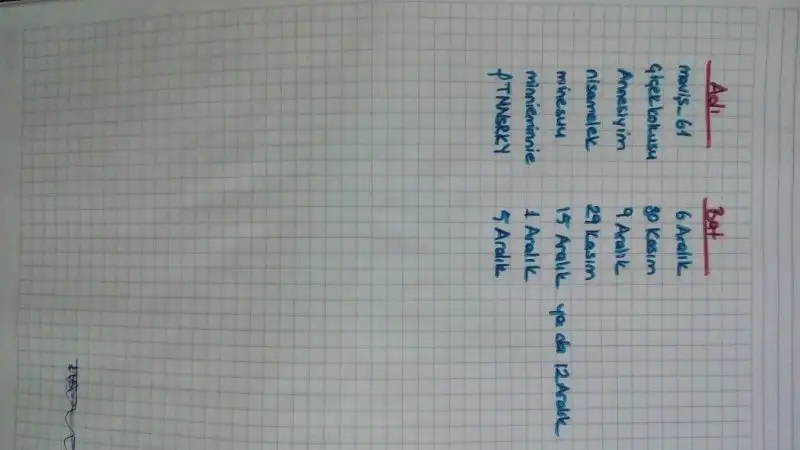 Adı Bet
maviş_61 6 Aralık
Çiçekkokusu 30 Kasım
Annesiyim 9 Aralık
nisamelek 29 Kasım
minesuu 15 Aralık ya da 12 Aralık
minnieminnie 1 Aralık
TNNSRKY 5 Aralık